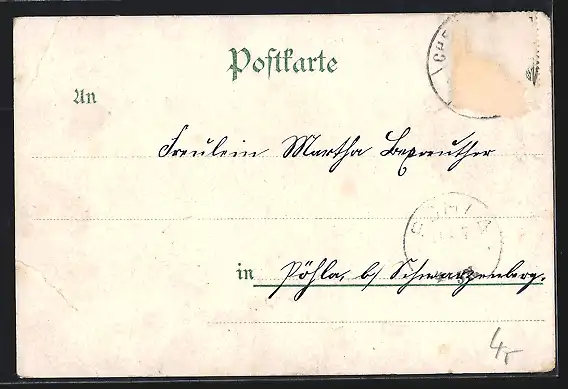 Postkarte
An
Fräulein Martha Bexreuther
in Pöhla, b/ Schwarzenberg.
4,-